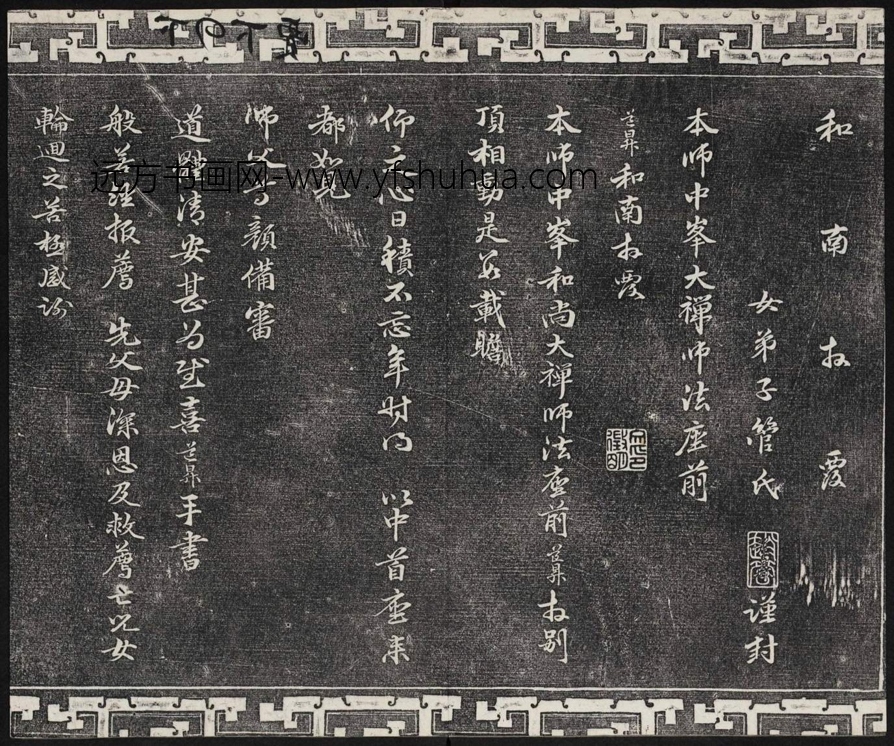 和南拜覆
女弟子管氏 謹封
本师中峯大禪师法座前
道昇和南拜覆
本师中峯和尚大禪师法座前道昇拜别
頂相動是數載瞻
仰之心日積不忘年时得 以中首座來
都如見
师父尊顏備審
道體清安甚为至喜道昇手書
般若經报薦 先父母深恩及救薦亡兒女
輪迴之苦極感謝
远方书画网-www.yfshuhua.com